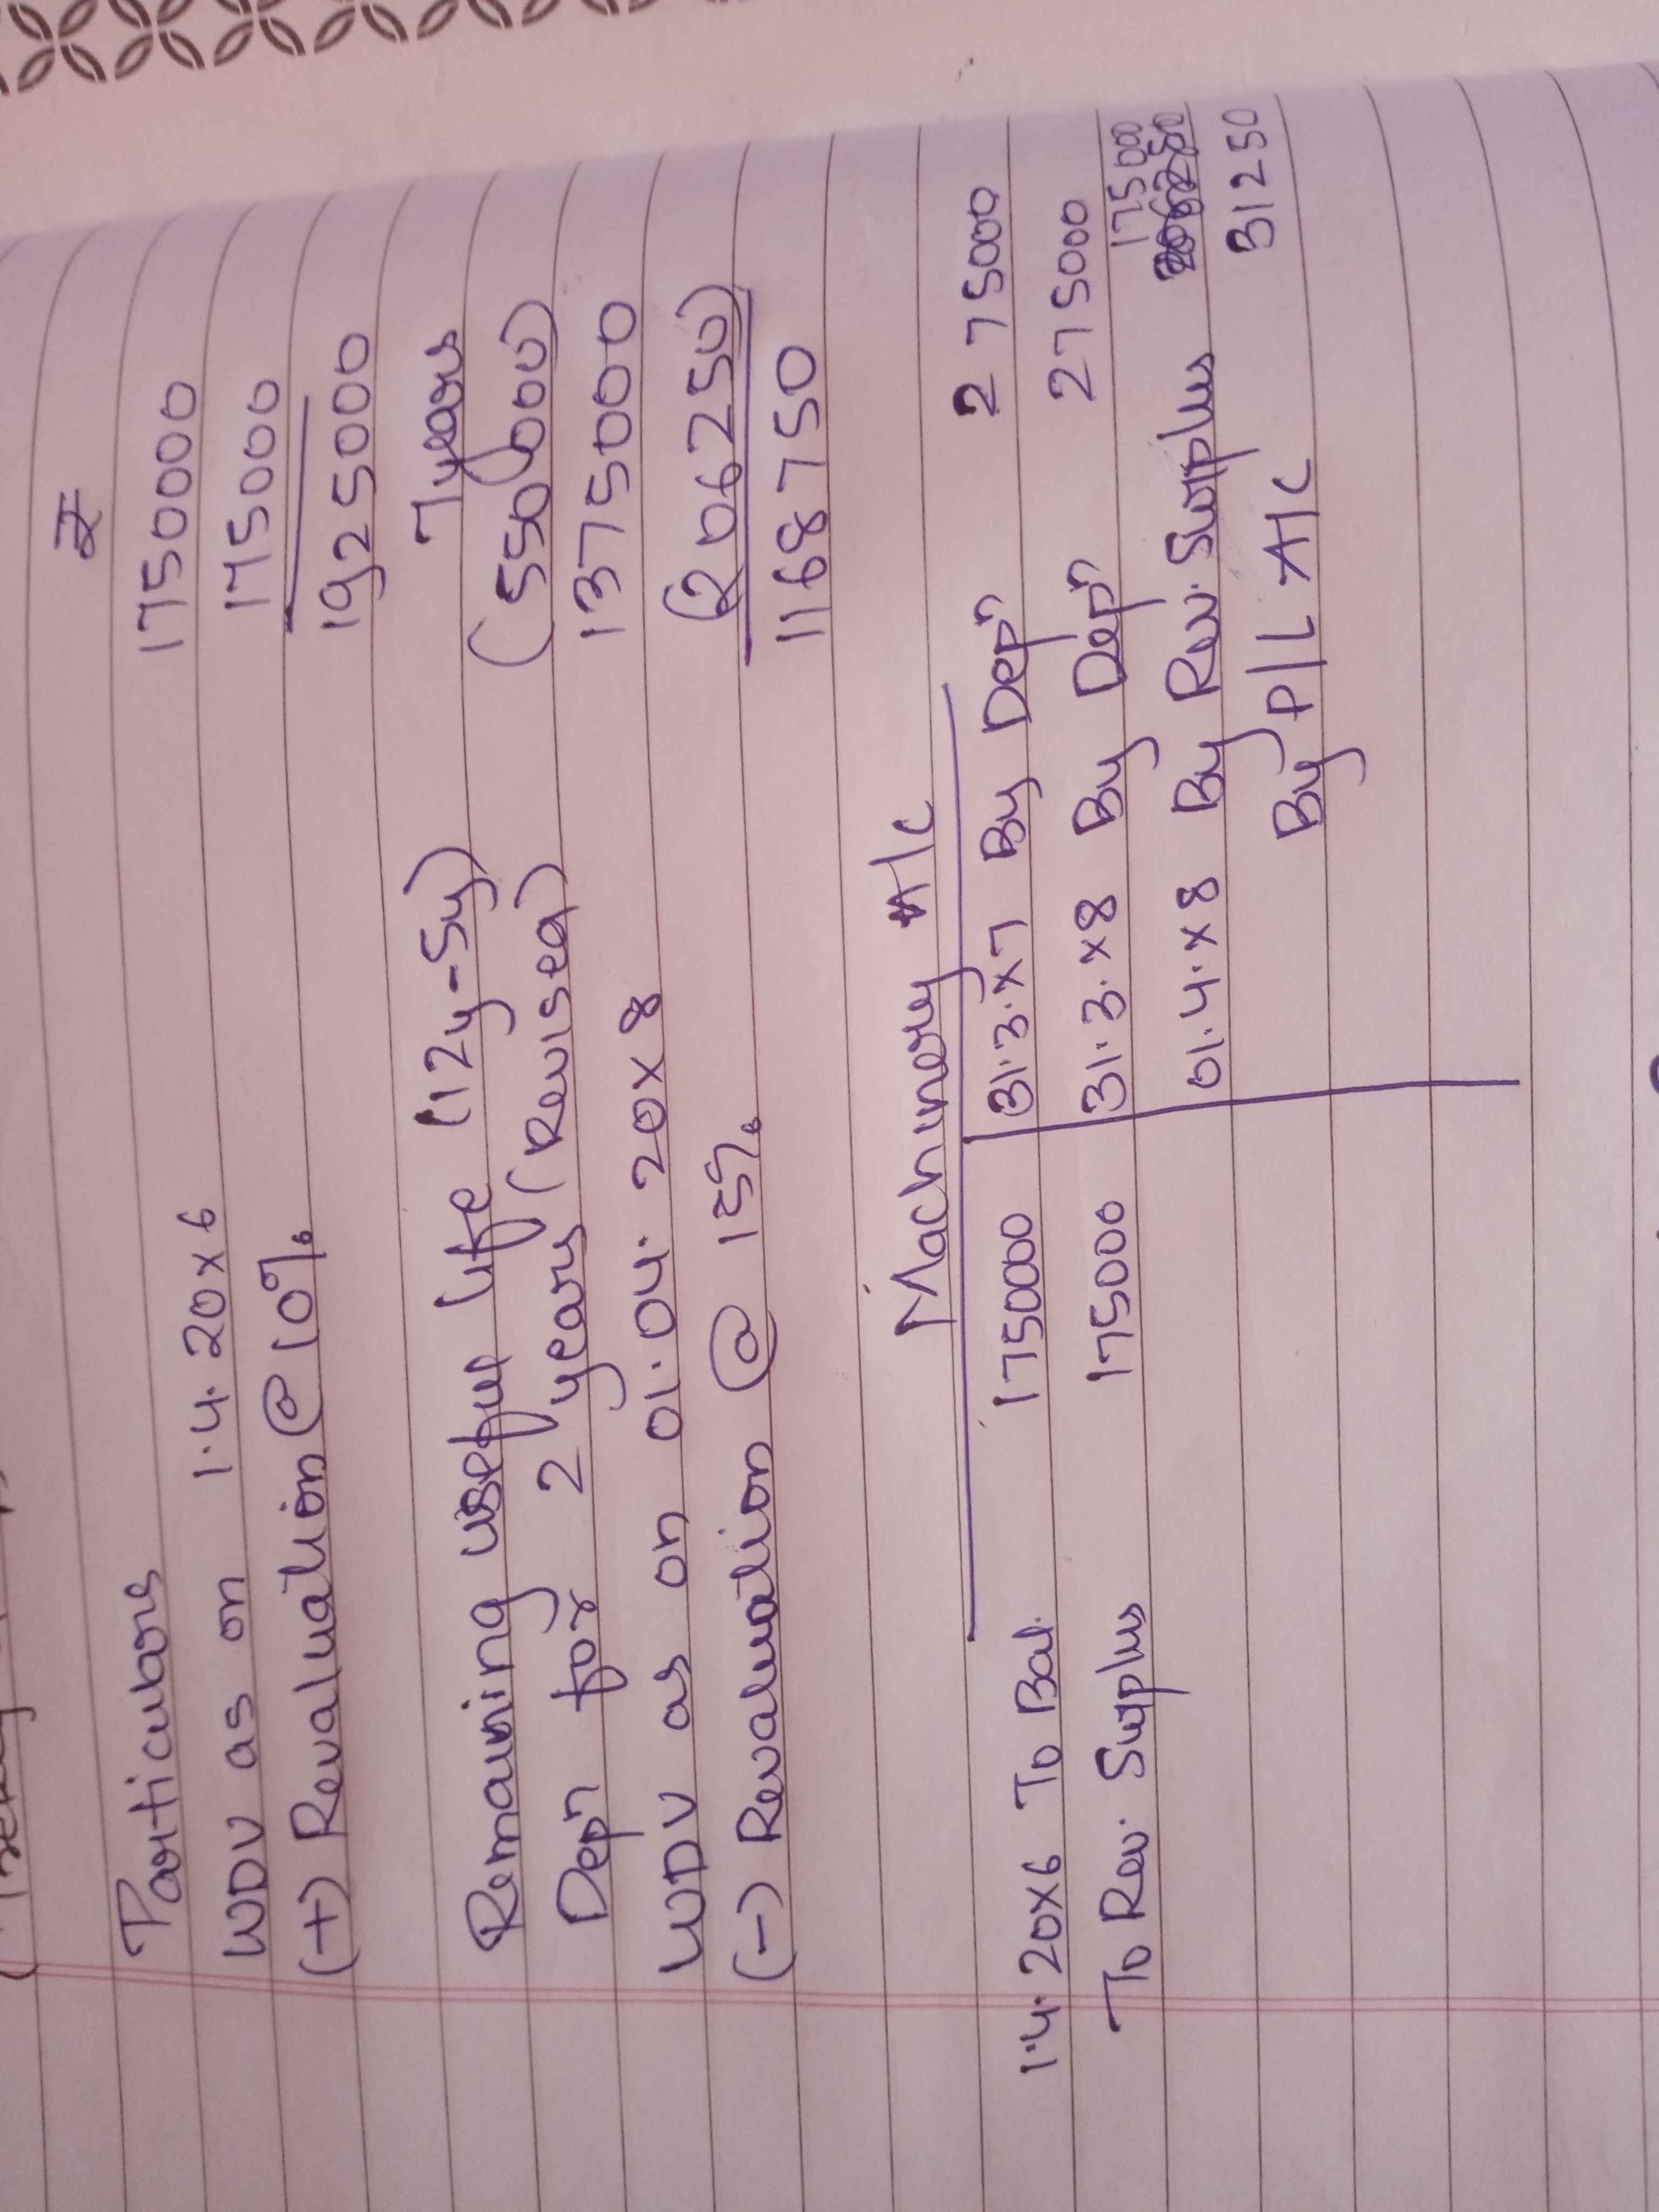 ₹
Particulars
WDV as on 1.4.20x6 1750000
(+) Revaluation @ 10% 175000
1925000
Remaining useful life (12y-5y) 7 years
Depn for 2 years (Revised) (550,000)
WDV as on 01.04.20x8 1375000
(-) Revaluation @ 15% (206250)
1168750
Machinery A/c
1.4.20x6 To Bal. 1750000 31.3.x7 By Depn 275000
To Rev. Surplus 175000 31.3.x8 By Depn 275000
175000
01.4.x8 By Rev. Surplus
By P/L A/C 31250